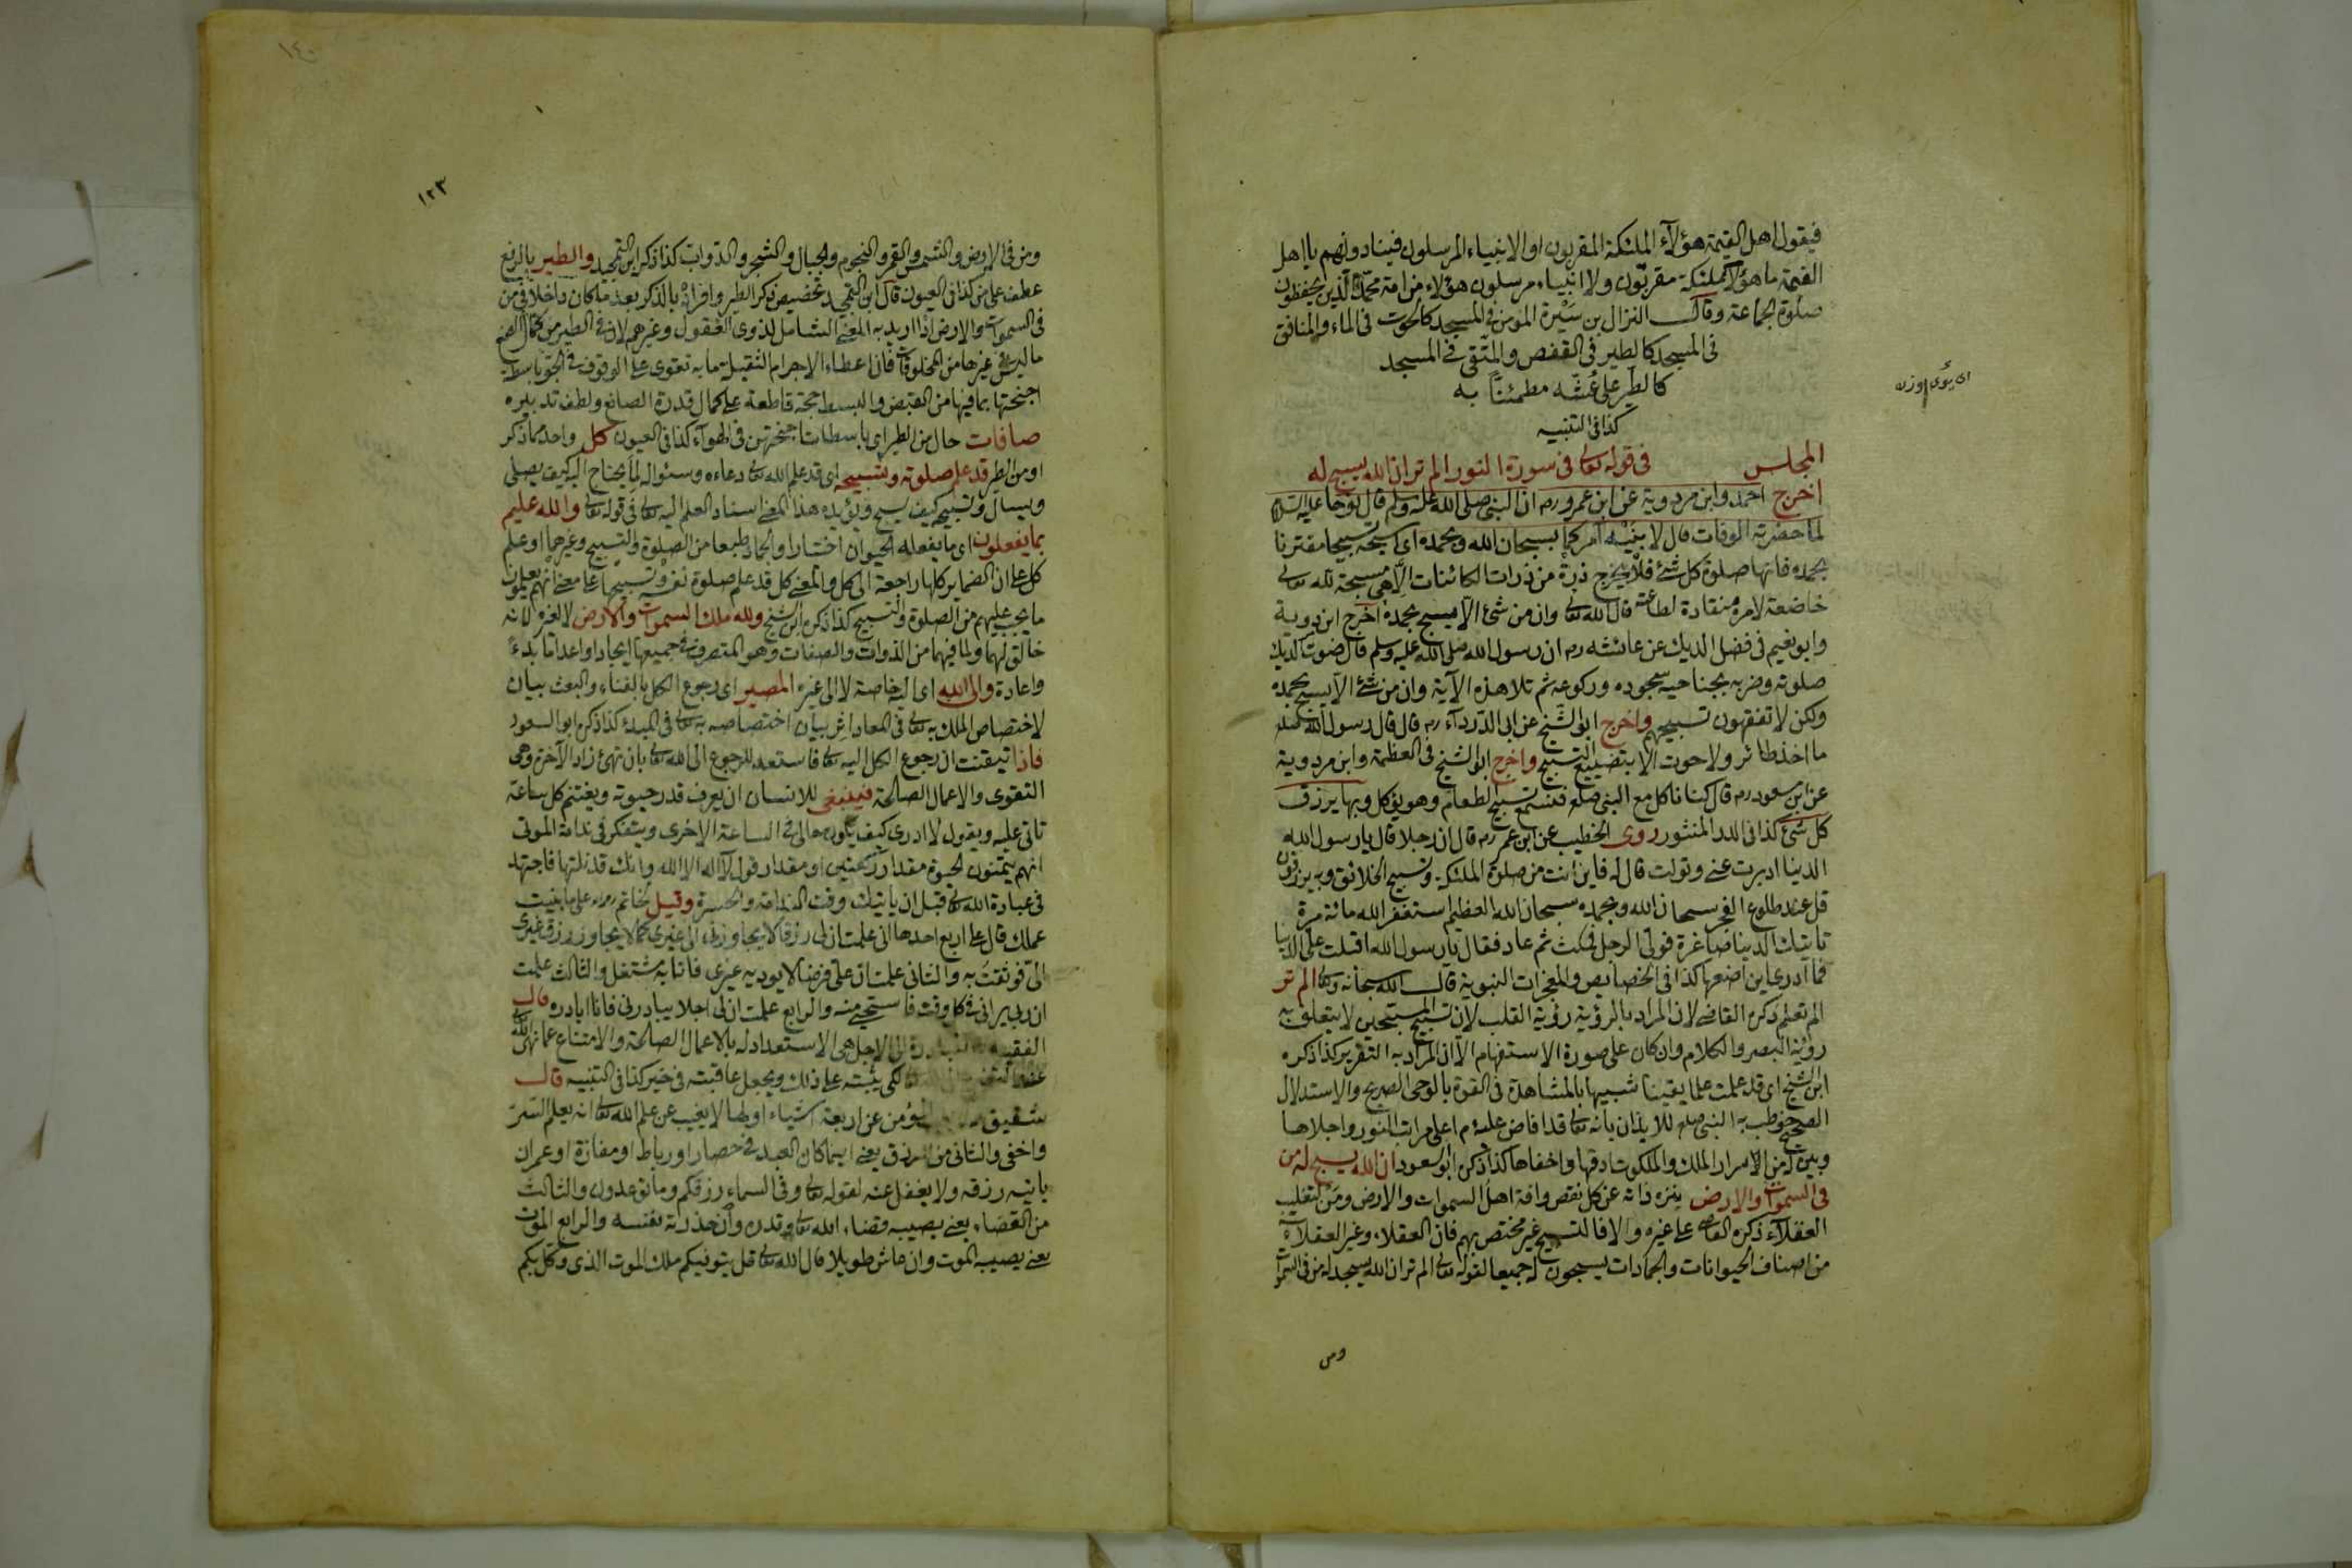 فيقول اهل القيمة هؤلاء الملئكة المقربون او الانبياء المرسلون فينادونهم يا اهل
القيمة ما هؤلاء ملئكة مقربون ولا انبياء مرسلون هؤلاء من امة محمد الذين يحفظون
صلوة الجماعة وقال النزال بن سبرة المؤمن في المسجد كالحوت في الماء والمنافق
في المسجد كالطير في القفص والمتقى في المسجد
كالطير على عشه مطمئنا به
كذا في التنبيه
اى يؤى اوزن
المجلس في قوله تعالى في سورة النور الم تر ان الله يسبح له
اخرج احمد وابن مردوية عن ابن عمرو رم ان النبى صلى الله عليه وسلم قال نوحا عليه السلام
لما حضرته الوفات قال لابنيه آمركما بسبحان الله وبحمده اى اسبحه تسبيحا مقترنا
بحمده فانها صلوة كل شئ فلا يخرج ذرة من ذرات الكائنات الا هى مسبحة لله تعالى
خاضعة لامره منقادة لطاعته قال الله تعالى وان من شئ الا يسبح بحمده اخرج ابن مردوية
وابو نعيم في فضل الديك عن عائشه رم ان رسول الله صلى الله عليه وسلم قال صوت الديك
صلوته وضربه بجناحيه سجوده وركوعه ثم تلا هذه الآية وان من شئ الا يسبح بحمده
ولكن لا تفقهون تسبيحهم واخرج ابو الشيخ عن ابى الدرداء رم قال قال رسول الله صلعم
ما اخذ طائر ولا حوت الا بتضييع التسبيح واخرج ابو الشيخ في العظمة وابن مردوية
عن ابن مسعود رم قال كنا ناكل مع النبى صلعم فنسمع تسبيح الطعام وهو يؤكل وبها يرزق
كل شئ كذا في الدر المنثور روى الخطيب عن ابن عمر رم قال ان رجلا قال يا رسول الله
الدنيا ادبرت عنى وتولت قال له فاين انت من صلوة الملئكة وتسبيح الخلائق وبه يرزقون
قل عند طلوع الفجر سبحان الله وبحمده سبحان الله العظيم استغفر الله مائة مرة
تأتيك الدنيا صاغرة فولى الرجل فمكث ثم عاد فقال يا رسول الله اقبلت على الدنيا
فما ادرى اين اضعها كذا في الخصايص والمعجزات النبوية قال الله سبحانه وتعالى الم تر
الم تعلم ذكره القاضى لان المراد بالرؤية رؤية القلب لان تسبيح المسبحين لا يتعلق به
رؤية البصر والكلام وان كان على صورة الاستفهام الا ان المراد به التقرير كذا ذكره
ابن الشيخ اى قد علمت علما يقينا شبيها بالمشاهدة في القوة بالوحى الصريح والاستدلال
الصحيح خوطب به النبى صلعم للايذان بانه تعالى قد افاض عليه م اعلى مراتب النور واجلاها
وبين له من الاسرار الملك والملكوت ادقها واخفاها كذا ذكره ابو السعود ان الله يسبح له من
في السموات والارض ينزه ذاته عن كل نقص وافة اهل السموات والارض ومن لتغليب
العقلاء ذكره القاضى على غيره والا فالتسبيح غير مختص بهم فان العقلاء وغير العقلاء
من اصناف الحيوانات والجمادات يسبحون له جميعا لقوله تعالى الم تر ان الله يسجد له من في السموات
ومن
١٤٠
١٢٣
ومن في الارض والشمس والقمر والنجوم والجبال والشجر والدواب كذا ذكر ابن التمجيد والطير بالرفع
عطف على من كذا في العيون قال ابن التمجيد تخصيص ذكر الطير وافراده بالذكر بعد ما كان داخلا في من
في السموات والارض اذا اريد به المعنى الشامل لذوى العقول وغيرهم لان في الطير من كمال الصنع
ما ليس في غيرها من المخلوقات فان اعطاء الاجرام الثقيلة ما به تقوى على الوقوف في الجو باسطة
اجنحتها بما فيها من القبض والبسط حجة قاطعة على كمال قدرة الصانع ولطف تدبيره
صافات حال من الطير اى باسطات اجنحتهن في الهواء كذا في العيون كل واحد مما ذكر
او من الطير قد علم صلوته وتسبيحه اى قد علم الله تعالى دعاءه وسئواله لما يحتاج اليه كيف يصلى
ويسأل وتسبيحه كيف يسبح ويؤيده هذا المعنى اسناد العلم اليه تعالى في قوله تعالى والله عليم
بما يفعلون اى ما يفعله الحيوان اختيارا والجماد طبعا من الصلوة والتسبيح وغيرهما او علم
كل على ان الضماير كلها راجعة الى كل والمعنى كل قد علم صلوة نفسه وتسبيحها على معنى انهم يعلمون
ما يجب عليهم من الصلوة والتسبيح كذا ذكره ابن الشيخ ولله ملك السموات والارض لا لغيره لانه
خالق لهما ولما فيهما من الذوات والصفات وهو المتصرف في جميعها ايجادا واعداما بدءً
واعادة والى الله اى اليه خاصة لا الى غيره المصير اى رجوع الكل بالفناء والبعث بيان
لاختصاص الملك به تعالى في المعاد اثر بيان اختصاصه به تعالى في المبدأ كذا ذكره ابو السعود
فاذا تيقنت ان رجوع الكل اليه تعالى فاستعد للرجوع الى الله تعالى بان تهئ زاد الآخرة وهى
التقوى والاعمال الصالحة فينبغى للانسان ان يعرف قدر حيوته ويغتنم كل ساعة
تاتى عليه ويقول لا ادرى كيف يكون حالى في الساعة الاخرى ويتفكر في ندامة الموتى
انهم يتمنون لحيوة مقدار ركعتين او مقدار قول لا اله الا الله وانك قد نلتها فاجتهد
في عبادة الله تعالى قبل ان يأتيك وقت الندامة والحسرة وقيل لحاتم رم على ما بنيت
عملك قال على اربع احدها انى علمت ان لى رزقا لا يجاوزنى الى غيرى كما لا يجاوز رزق غيرى
الىّ فوثقت به والثانى علمت ان علىّ فرضا لا يوديه غيرى فانا به مشتغل والثالث علمت
ان ربى يرانى في كل وقت فاستحيى منه والرابع علمت ان لى اجلا يبادرنى فانا ابادره قال
الفقيه المبادرة الى الاجل هى الاستعداد له بالاعمال الصالحة والامتناع عما نهى الله
لكى يثبته على ذلك ويجعل عاقبته في خير كذا في التنبيه قال
شقيق عن اربعة اشياء اولها لا يغيب عن علم الله تعالى انه يعلم السر
واخفى والثانى من الرزق يعنى اينما كان العبد في حصار او رباط او مفازة او عمران
يأتيه رزقه ولا يغفل عنه لقوله تعالى وفي السماء رزقكم وما توعدون والثالث
من القضاء يعنى يصيبه قضاء الله تعالى وقدره وان حذرته نفسه والرابع الموت
يعنى يصيبه الموت وان عاش طويلا قال الله تعالى قل يتوفيكم ملك الموت الذى وكل بكم